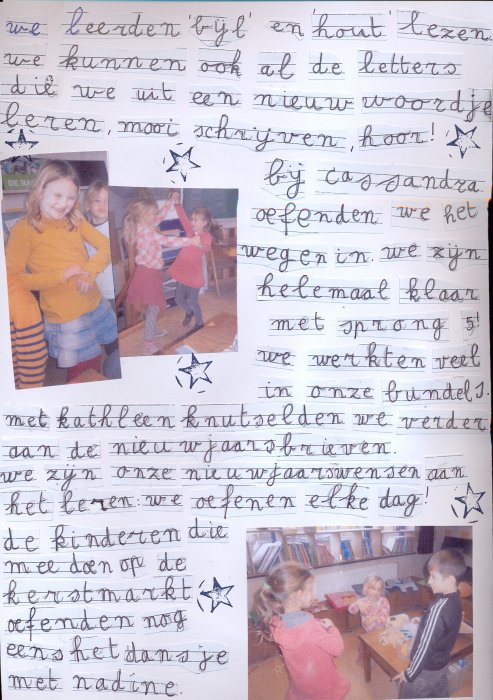 we leerden 'bijl' en 'hout' lezen.
we kunnen ook al de letters
die we uit een nieuw woordje
leren, mooi schrijven, hoor!
bij cassandra
oefenden we het
wegen in. we zijn
helemaal klaar
met sprong 5!
we werkten veel
in onze bundels.
met kathleen knutselden we verder
aan de nieuwjaarsbrieven.
we zijn onze nieuwjaarswensen aan
het leren: we oefenen elke dag!
de kinderen die
mee doen op de
kerstmarkt
oefenden nog
eens het dansje
met nadine.